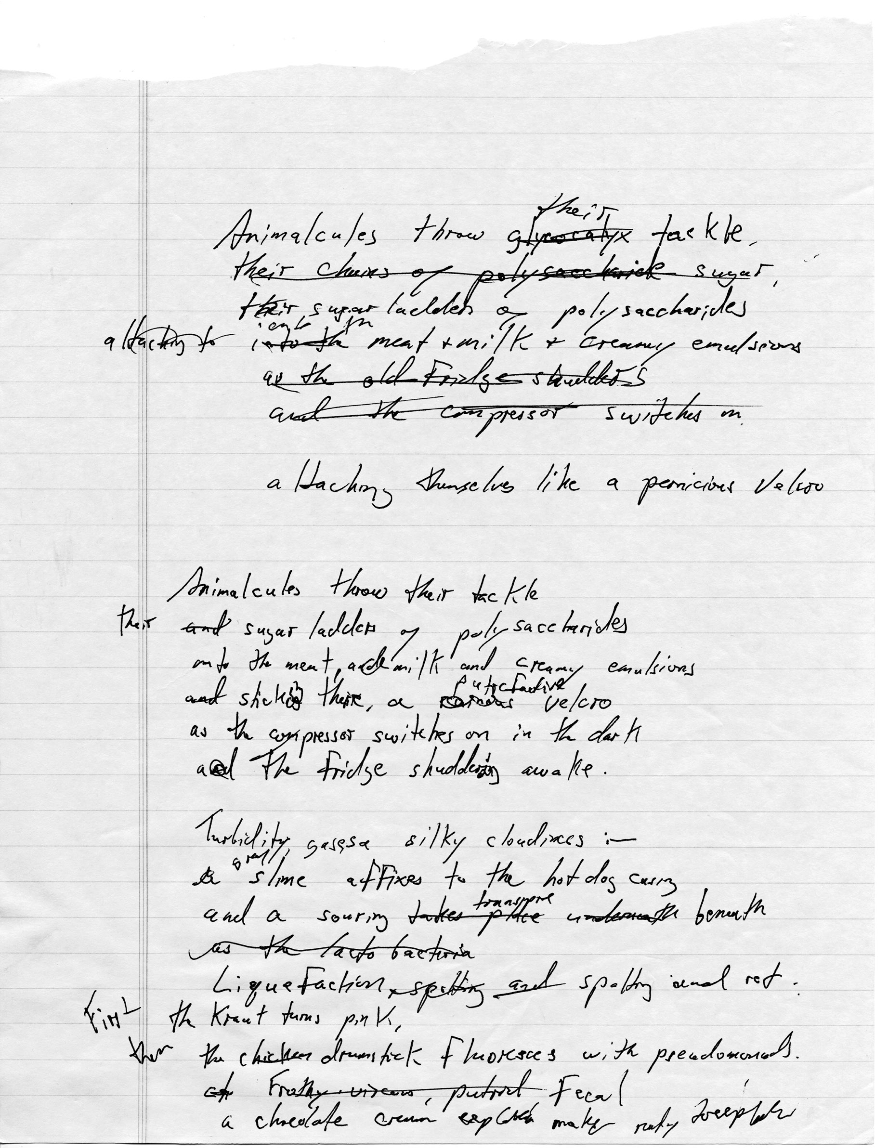 their
Animalcules throw glycocalyx tackle,
their chains of polysaccharide sugar,
their sugar ladders of polysaccharides
onto the
attaching to into the meat + milk + creamy emulsions
as the old fridge shudders
and the compressor switches on.
attaching themselves like a pernicious Velcro
Animalcules throw their tackle
their and sugar ladders of polysaccharides
onto the meat, and milk and creamy emulsions
putrefactive
and sticking there, a velcro
as the compressor switches on in the dark
and the fridge shuddering awake.
Turbidity, gases a silky cloudiness :—
gray
a slime affixes to the hotdog casing
transpire
and a souring takes place underneath beneath
as the lacto bacteria
Liquefaction, spotting and spotting and rot.
First the Kraut turns pink,
then the chicken drumstick fluoresces with pseudomonads.
Frothy viscous, putrid Fecal
a chocolate cream explodes